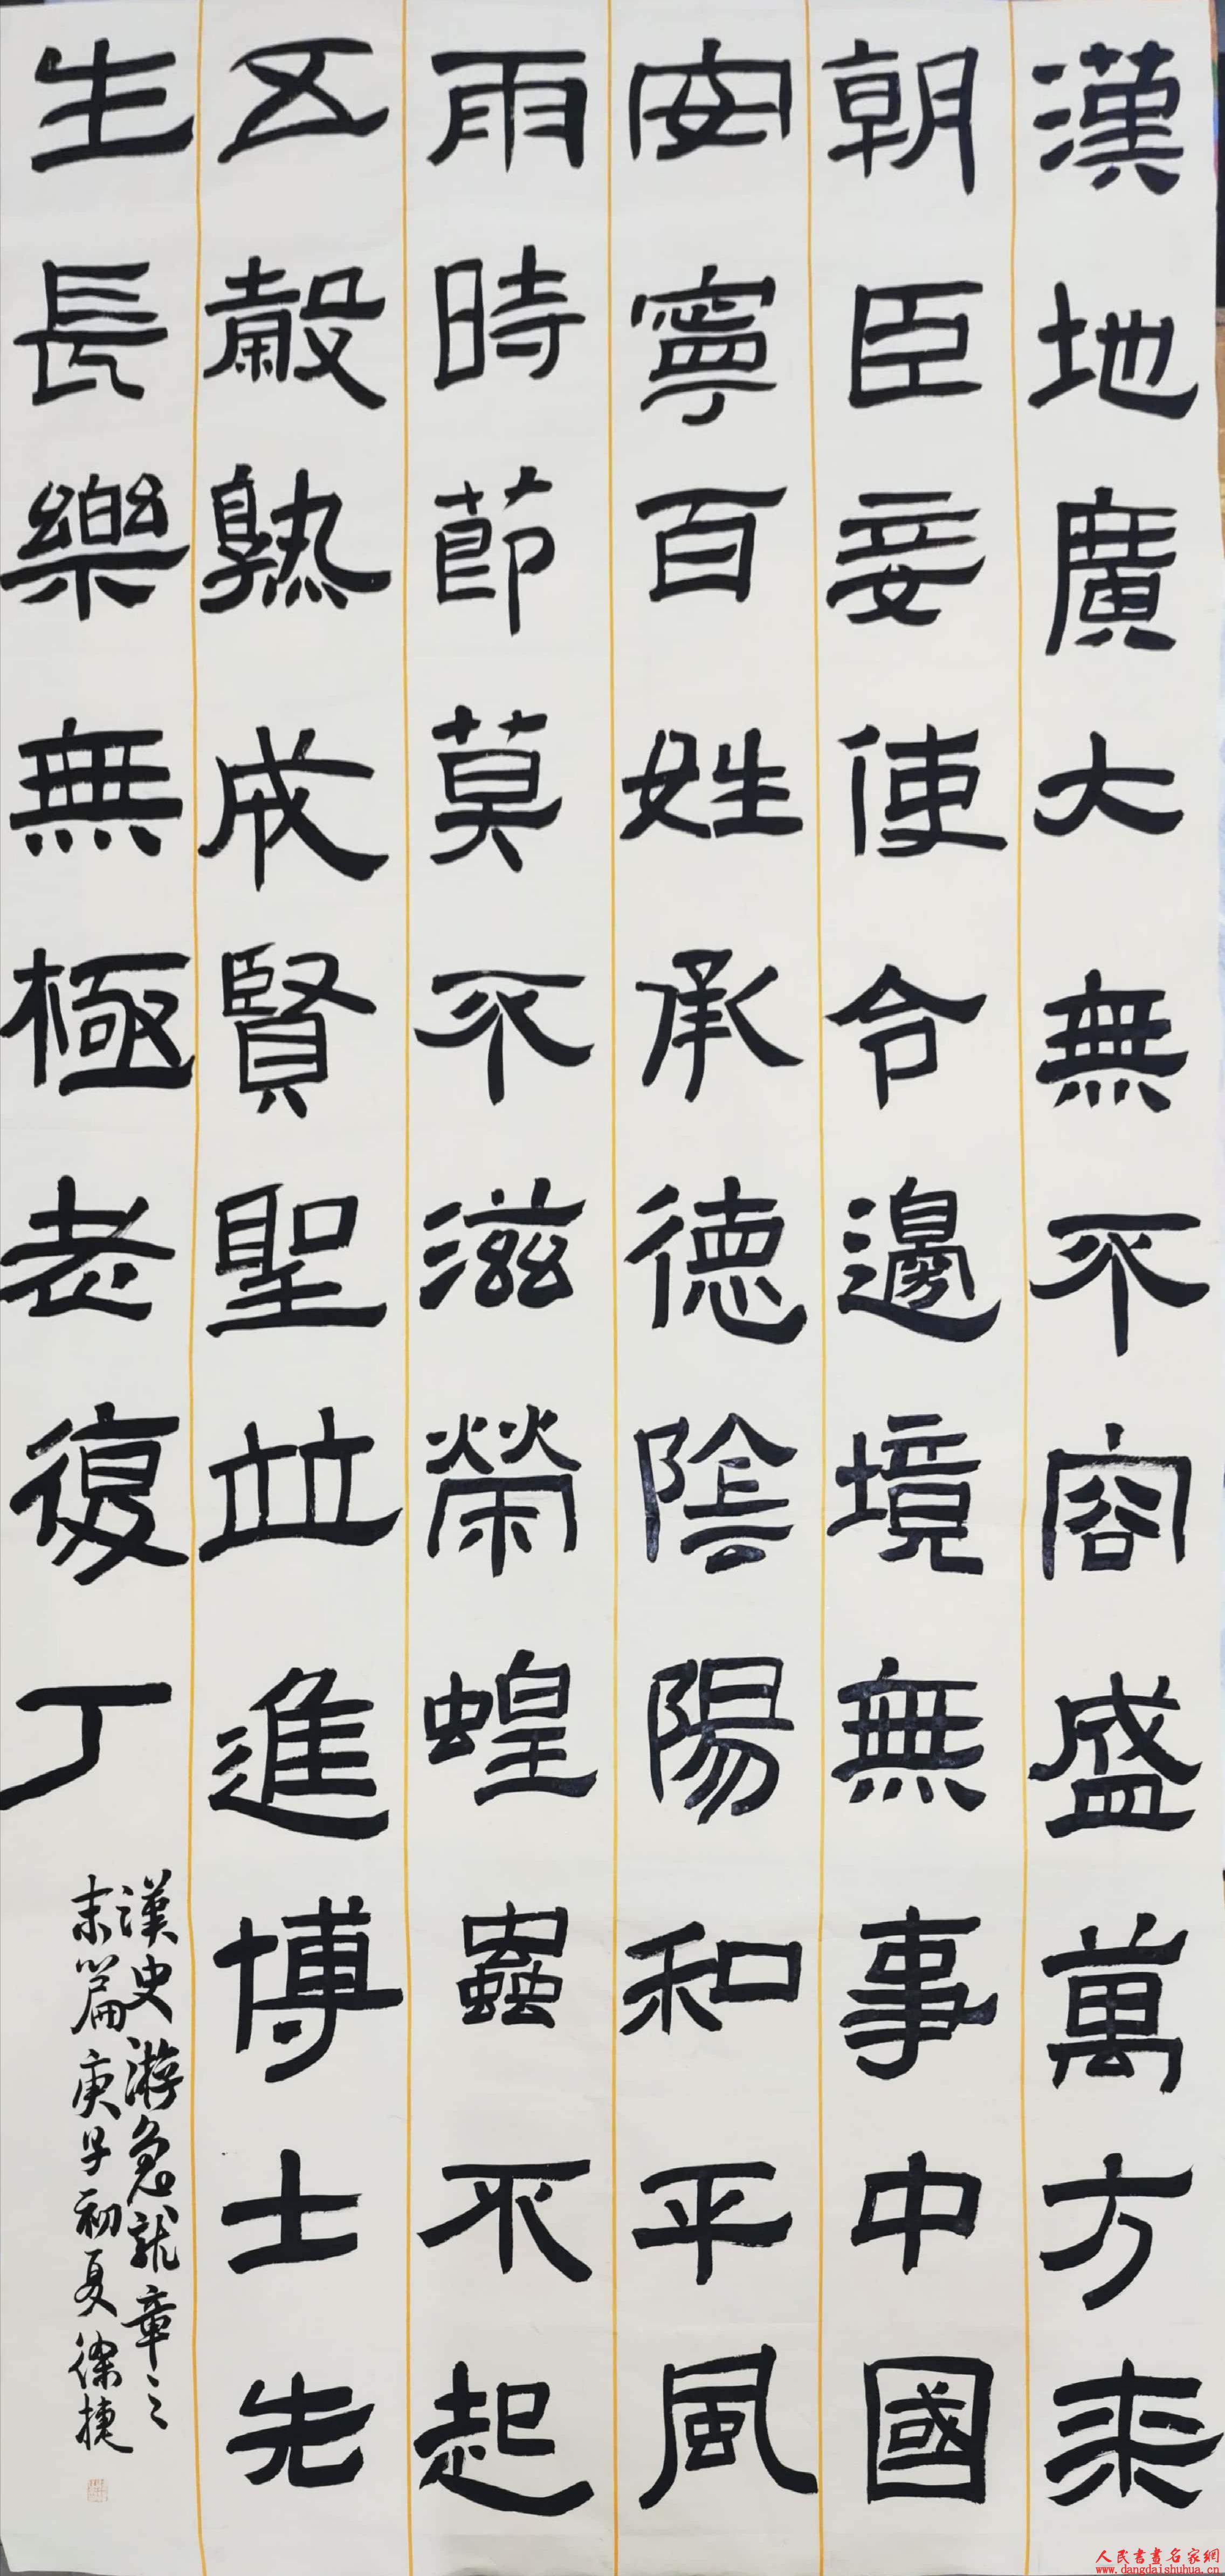 漢地廣大無不容盛萬方來
朝臣妾使令邊境無事中國
安寧百姓承德陰陽和平風
雨時節莫不滋榮蝗蟲不起
五穀熟成賢聖並進博士先
生長樂無極老復丁
漢史游急就章之
末篇庚子初夏徐捷
人民書畫名家網
www.dangdaishuhua.cn